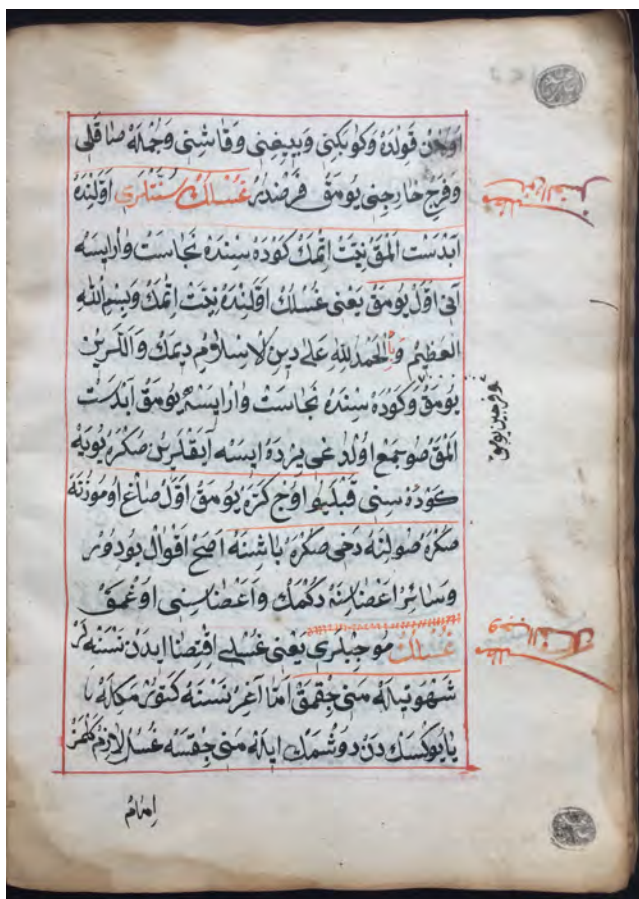 اوجن قولدە وكوبكنى وبييغنى وقاشنى وجملە صاقلى
وفرج خارجنى يومق فرضدر غسلك سنتلرى اولندە
ابدست المق نيت اتمك كودە سندە نجاست وارايسە
آنى اول يومق يعنى غسلك اولندە نيت اتمك وبسم الله
العظيم وبا لحمد لله على دين الاسلام ديمك واللرين
يومق وكودە سندە نجاست وارايسە يومق آبدست
المق صو جمع اولدغى يردە ايسە آيقلرين صكرە يويە
كودە سنى قپليو اوج كرە يومق اول صاغ اوموزنە
صكرە صولنە دخى صكرە باشنە اصح اقوال بودور
وسائر اعضاسنە دكمك واعضاسنى اوغمق
غسلك موجبلرى يعنى غسلى اقتضا ايدن نسنە لر
شهوتيلە منى چقمق اما آغر نسنە كتورمكلە يا
يا يوكسك دن دوشمك ايلە منى چقسە غسل لازم كلمز
امام
مطلب سنن الغسل
و فرجين يومق
مطلب موجب الغسل